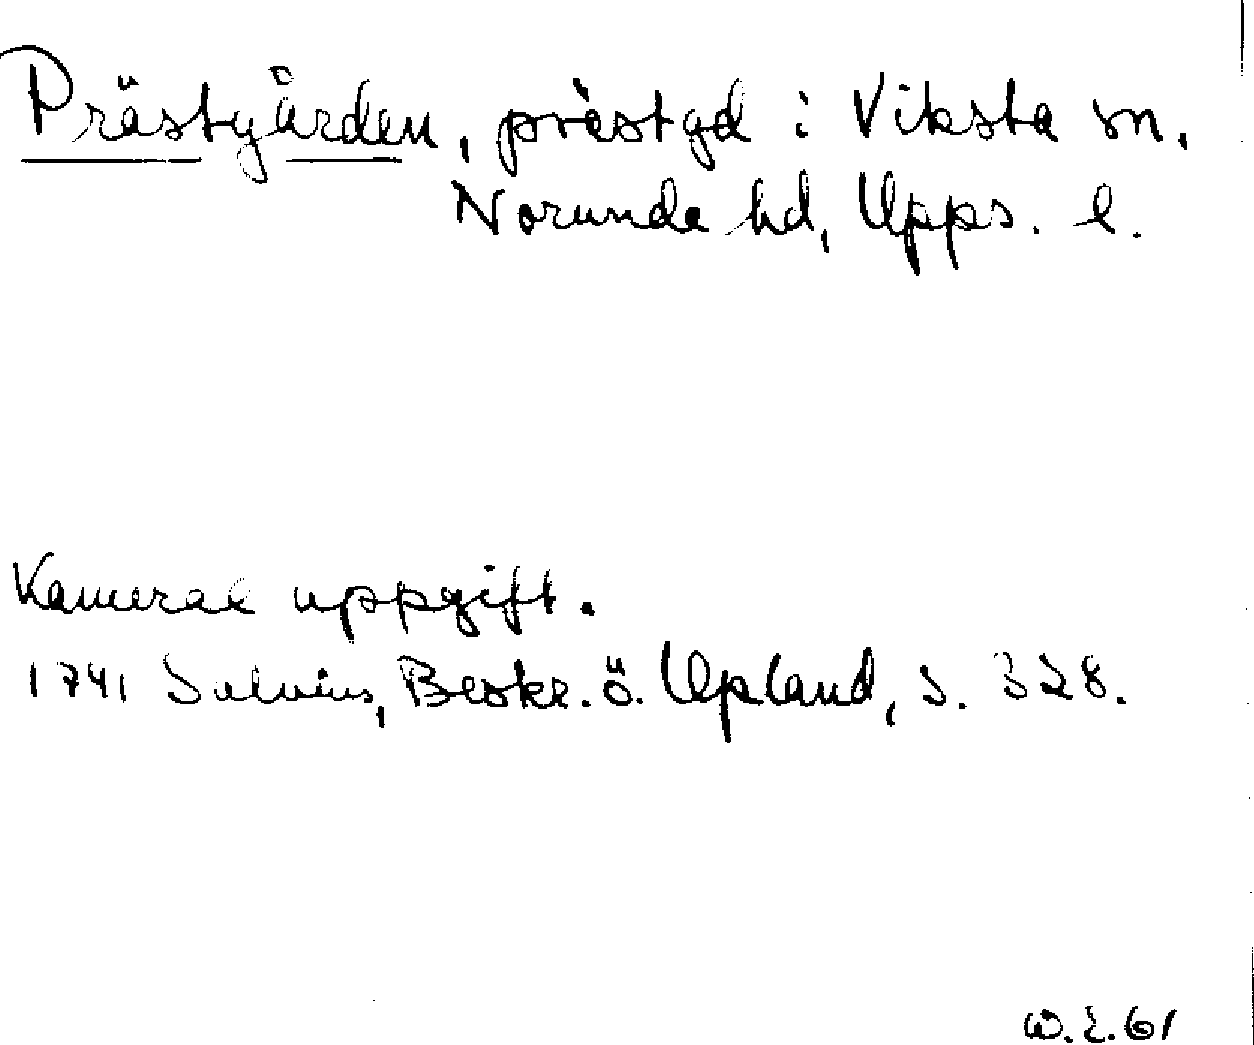 Prästgården, prästgd i Viksta sn,
Norunda hd, Upps. l.
Kameral uppgift.
1741 Salvius, Beskr. ö. Upland, s. 328.
W.E.61